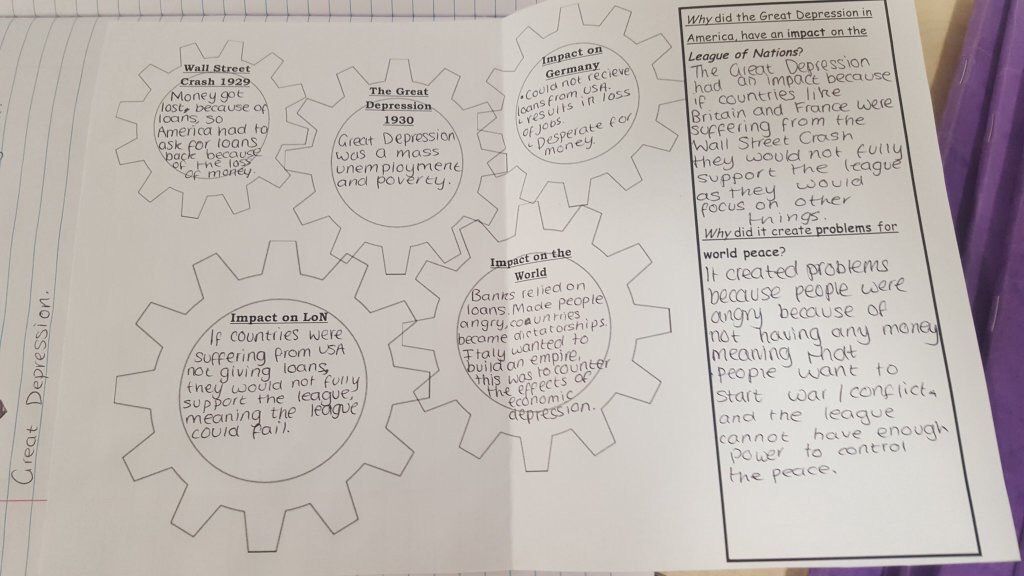 Great Depression.
Wall Street
Crash 1929
Money got
lost, because of
loans, so
America had to
ask for loans
back because
of the loss
of money.
The Great
Depression
1930
Great Depression
was a mass
unemployment
and poverty.
Impact on
Germany
• Could not recieve
loans from USA.
• results in loss
of jobs.
• Desperate for
money.
Impact on LoN
If countries were
suffering from USA
not giving loans,
they would not fully
support the league,
meaning the league
could fail.
Impact on the
World
Banks relied on
loans. Made people
angry, countries
became dictatorships.
Italy wanted to
build an empire,
this was to counter
the effects of
economic
depression.
Why did the Great Depression in
America, have an impact on the
League of Nations?
The Great Depression
had an impact because
if countries like
Britain and France were
suffering from the
Wall Street Crash
they would not fully
support the league
as they would
focus on other
things.
Why did it create problems for
world peace?
It created problems
because people were
angry because of
not having any money
meaning that
people want to
start war / conflict,
and the league
cannot have enough
power to control
the peace.